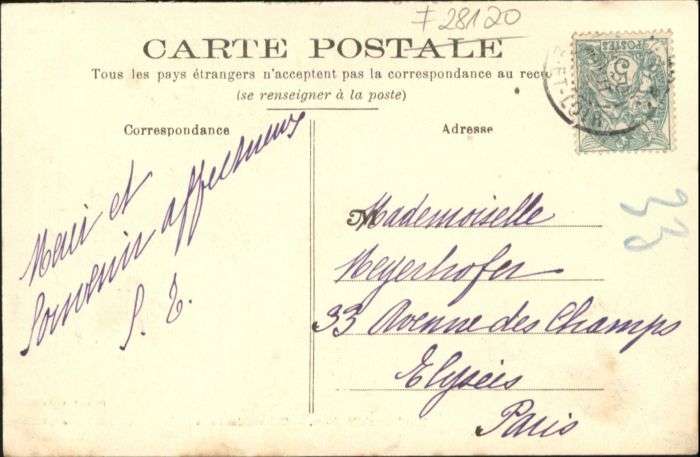 # 28120
CARTE POSTALE
Tous les pays étrangers n'acceptent pas la correspondance au recto
(se renseigner à la poste)
Correspondance
Adresse
Merci et
Souvenir affectueux
S. T.
Mademoiselle
Meyerhofer
33 Avenue des Champs
Elyseés
Paris
33
POSTES
5
ET-LOIR